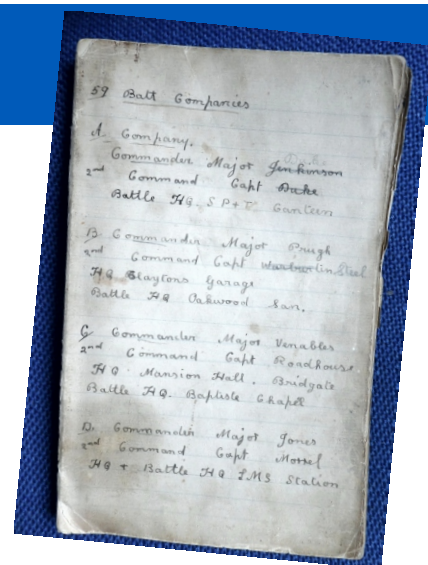 59 Batt Companies
A. Company.
Commander Major Jenkinson
2nd Command Capt
Battle HQ. S P + Canteen
B Commander Major Prugh
2nd Command Capt Steel
HQ Claytons Garage
Battle HQ Oakwood San.
C Commander Major Venables
2nd Command Capt Roadhouse
HQ Mansion Hall. Bridgate
Battle HQ. Baptiste Chapel
D. Commander Major Jones
2nd Command Capt Morrel
HQ + Battle HQ LMS Station